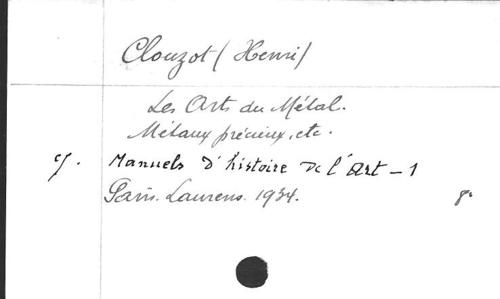 Clouzot (Henri)
Les Arts du Métal.
Métaux précieux, etc.
cf. Manuels d'histoire de l'Art - 1
Paris. Laurens. 1934. 8°